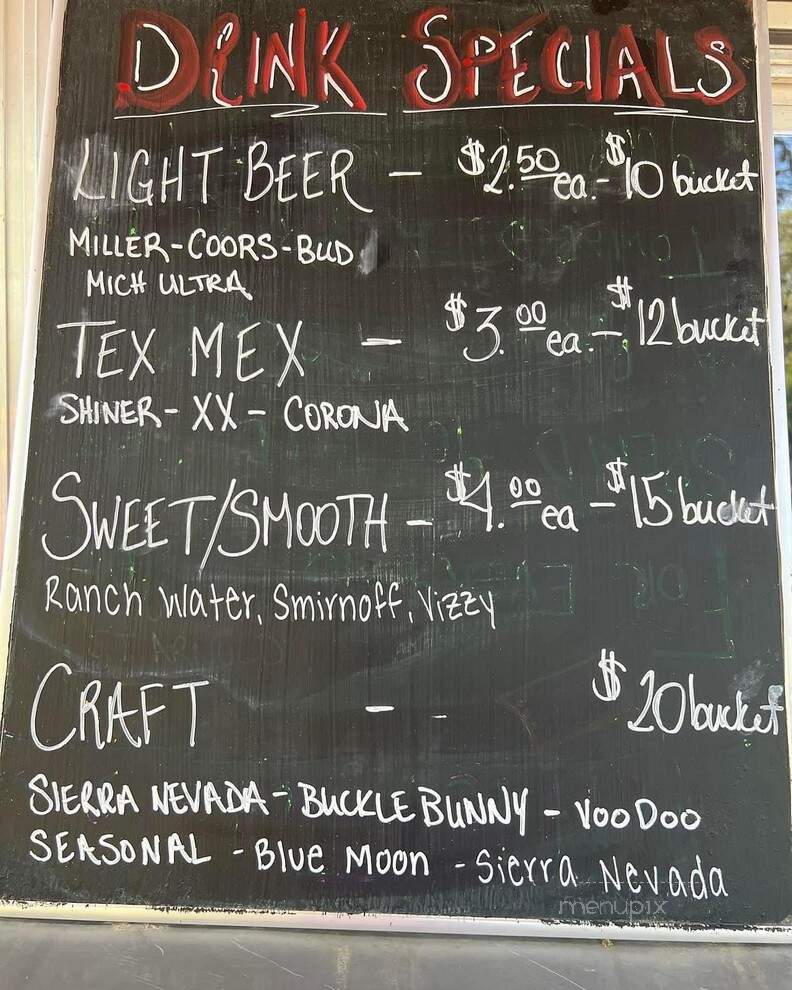 DRINK SPECIALS
LIGHT BEER - $2.50 ea. - $10 bucket
MILLER-COORS-BUD
MICH ULTRA
TEX MEX - $3.00 ea. - $12 bucket
SHINER - XX - CORONA
SWEET/SMOOTH - $4.00 ea - $15 bucket
Ranch Water, Smirnoff, Vizzy
CRAFT - - $20 bucket
SIERRA NEVADA - BUCKLE BUNNY - VOODOO
SEASONAL - Blue Moon - Sierra Nevada
menupix